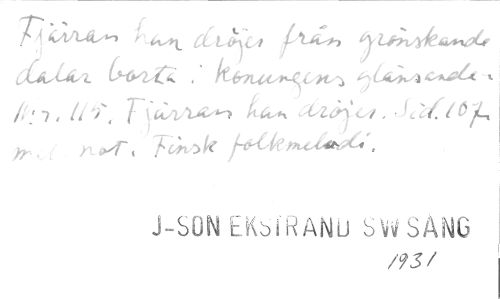 Fjärran han dröjer från grönskande
dalar borta i konungens glänsande -
N:r. 115. Fjärran han dröjer. Sid. 107.
med not. Finsk folkmelodi.
J-SON EKSTRAND SW SANG
1931